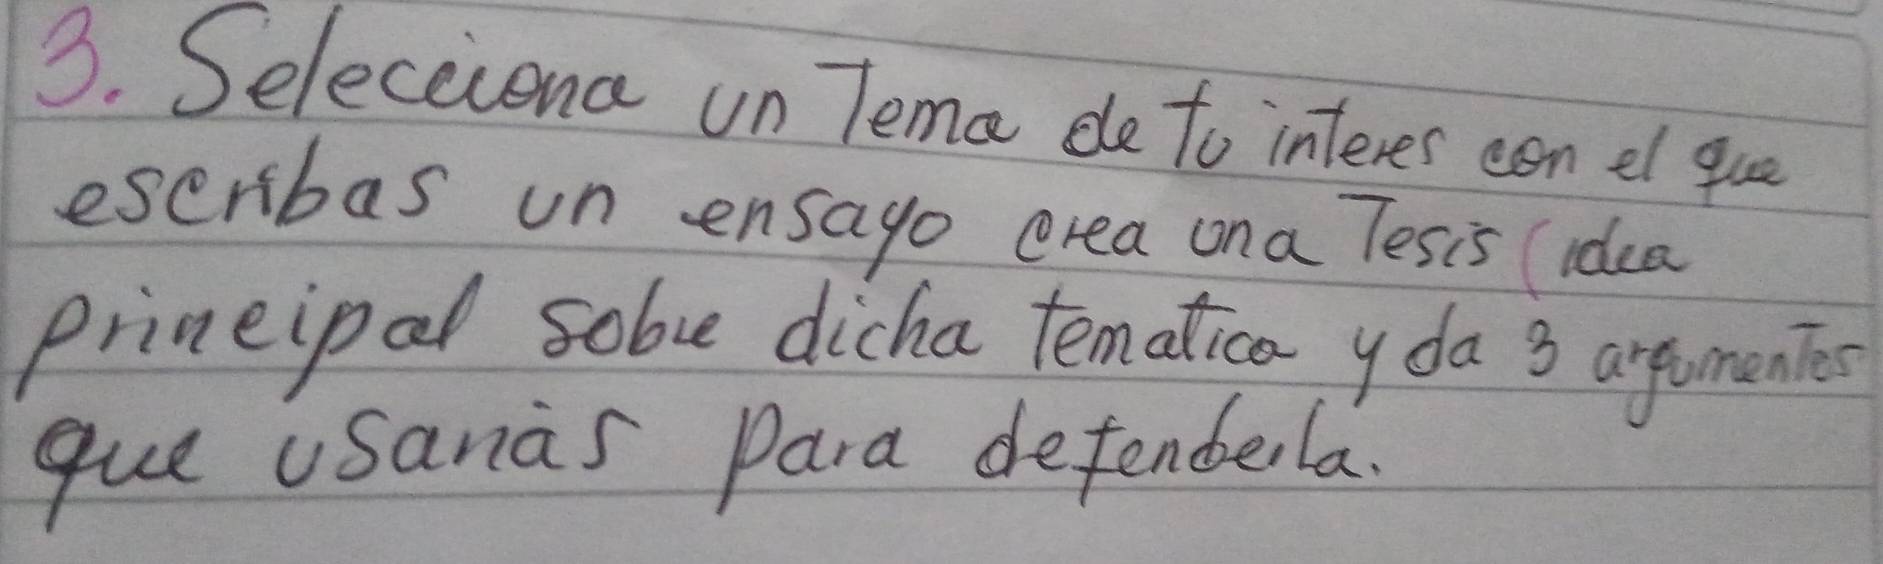 3. Selecciona un Tema de tu interes con el que
escribas un ensayo crea una Tesis (idea
principal sobre dicha tematica y da 3 argumentos
que usarías para defenderla.